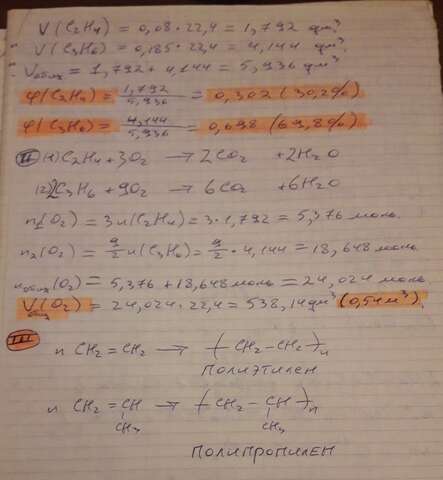 V(C₂H₄) = 0,08·22,4 = 1,792 дм³
V(C₃H₆) = 0,185·22,4 = 4,144 дм³
Vобщ = 1,792 + 4,144 = 5,936 дм³
φ(C₂H₄) = 1,792/5,936 = 0,302 (30,2%)
φ(C₃H₆) = 4,144/5,936 = 0,698 (69,8%)
II (1) C₂H₄ + 3O₂ → 2CO₂ + 2H₂O
(2) 2C₃H₆ + 9O₂ → 6CO₂ + 6H₂O
n₁(O₂) = 3n(C₂H₄) = 3·1,792 = 5,376 моль.
n₂(O₂) = 9/2 n(C₃H₆) = 9/2 · 4,144 = 18,648 моль.
nобщ(O₂) = 5,376 + 18,648 моль = 24,024 моль
Vобщ(O₂) = 24,024·22,4 = 538,14 дм³ (0,54 м³).
III n CH₂ = CH₂ → (CH₂ – CH₂)n
ПОЛИЭТИЛЕН
n CH₂ = CH → (CH₂ – CH)n
CH₃ CH₃
ПОЛИПРОПИЛЕН